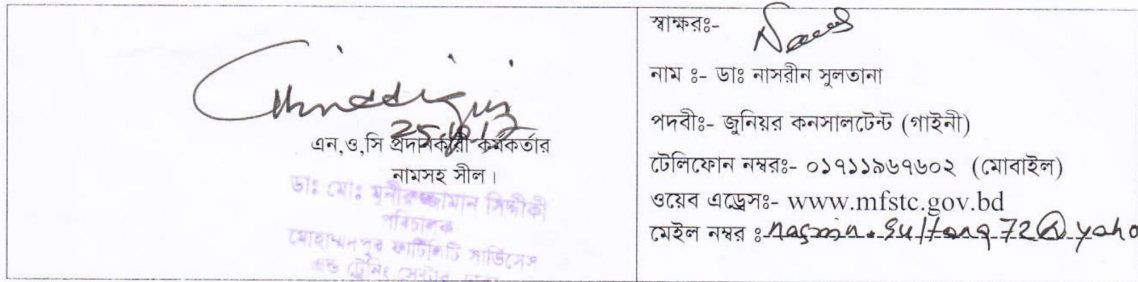 25.
এন,ও,সি প্রদানকারী কর্মকর্তার
নামসহ সীল।
ডাঃ মোঃ মুনীরুজ্জামান সিদ্দীকী
পরিচালক
মোহাম্মদপুর ফার্টিলিটি সার্ভিসেস
এন্ড ট্রেনিং সেন্টার, ঢাকা
স্বাক্ষরঃ-
নাম ঃ- ডাঃ নাসরীন সুলতানা
পদবীঃ- জুনিয়র কনসালটেন্ট (গাইনী)
টেলিফোন নম্বরঃ- ০১৭১১৯৬৭৬০২ (মোবাইল)
ওয়েব এড্রেসঃ- www.mfstc.gov.bd
মেইল নম্বর ঃ nasrin.sultana72@yaho